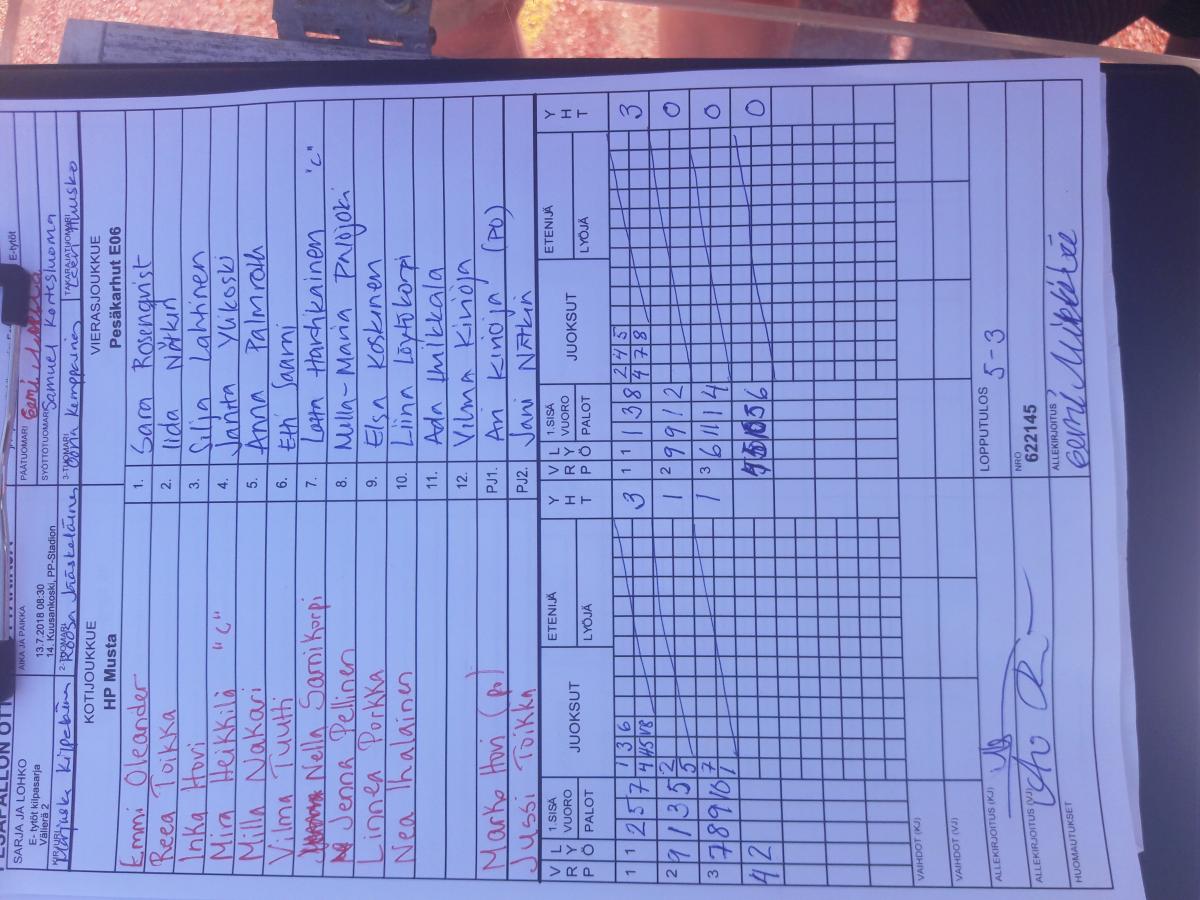 SARJA JA LOHKO
E- tytöt kilpasarja
Välierä 2
AIKA JA PAIKKA
13.7.2018 08:30
14. Kuusankoski, PP-Stadion
PÄÄTUOMARI
E-tytöt
SYÖTTÖTUOMARI Samuel Kortesluoma
2-TUOMARI Roosa Jääskeläinen
3-TUOMARI
TAKARAJATUOMARI
KOTIJOUKKUE
HP Musta
VIERASJOUKKUE
Pesäkarhut E06
Emmi Oleander 1. Sara Rosenqvist
Reea Toikka 2. Iida Nätkin
Inka Hovi 3. Silja Lahtinen
Mira Heikkilä "C" 4.
Milla Nakari 5. Anna Palmroth
Vilma Tuutti 6. Etti Saarni
Nella Sarnikorpi 7. Lotta Harhikainen "C"
Jenna Pellinen 8. Milla-Maria Palojoki
Linnea Porkka 9. Elsa Koskinen
Nea Ihalainen 10. Liina Löytökorpi
11. Ada Huikkala
12. Vilma Kirioja
Marko Hovi (po) PJ1. Ari Kirioja (PO)
Jussi Toikka PJ2. Jani Nätkin
V R P L Y Ö 1.SISÄ VUORO PALOT JUOKSUT ETENIJÄ LYÖJÄ Y H T V R P L Y Ö 1.SISÄ VUORO PALOT JUOKSUT ETENIJÄ LYÖJÄ Y H T
1 1 2 5 7 1 3 6 3 1 1 1 3 8 2 4 5 3
4 7 8
2 9 1 3 5 2 1 2 9 9 1 2 0
5
3 7 8 9 10 7 1 3 6 11 1 4 0
1
4 2 0
VAIHDOT (KJ)
VAIHDOT (VJ)
ALLEKIRJOITUS (KJ)
LOPPUTULOS 5-3
ALLEKIRJOITUS (VJ)
NRO
622145
HUOMAUTUKSET
ALLEKIRJOITUS